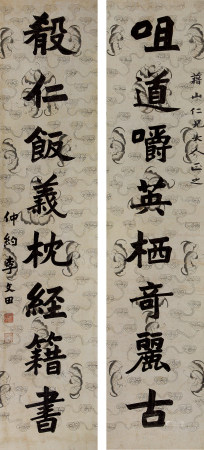 咀道嚼英栖奇麗古
蔣山仁兄大人正之
殽仁飯義枕經籍書
仲約李文田